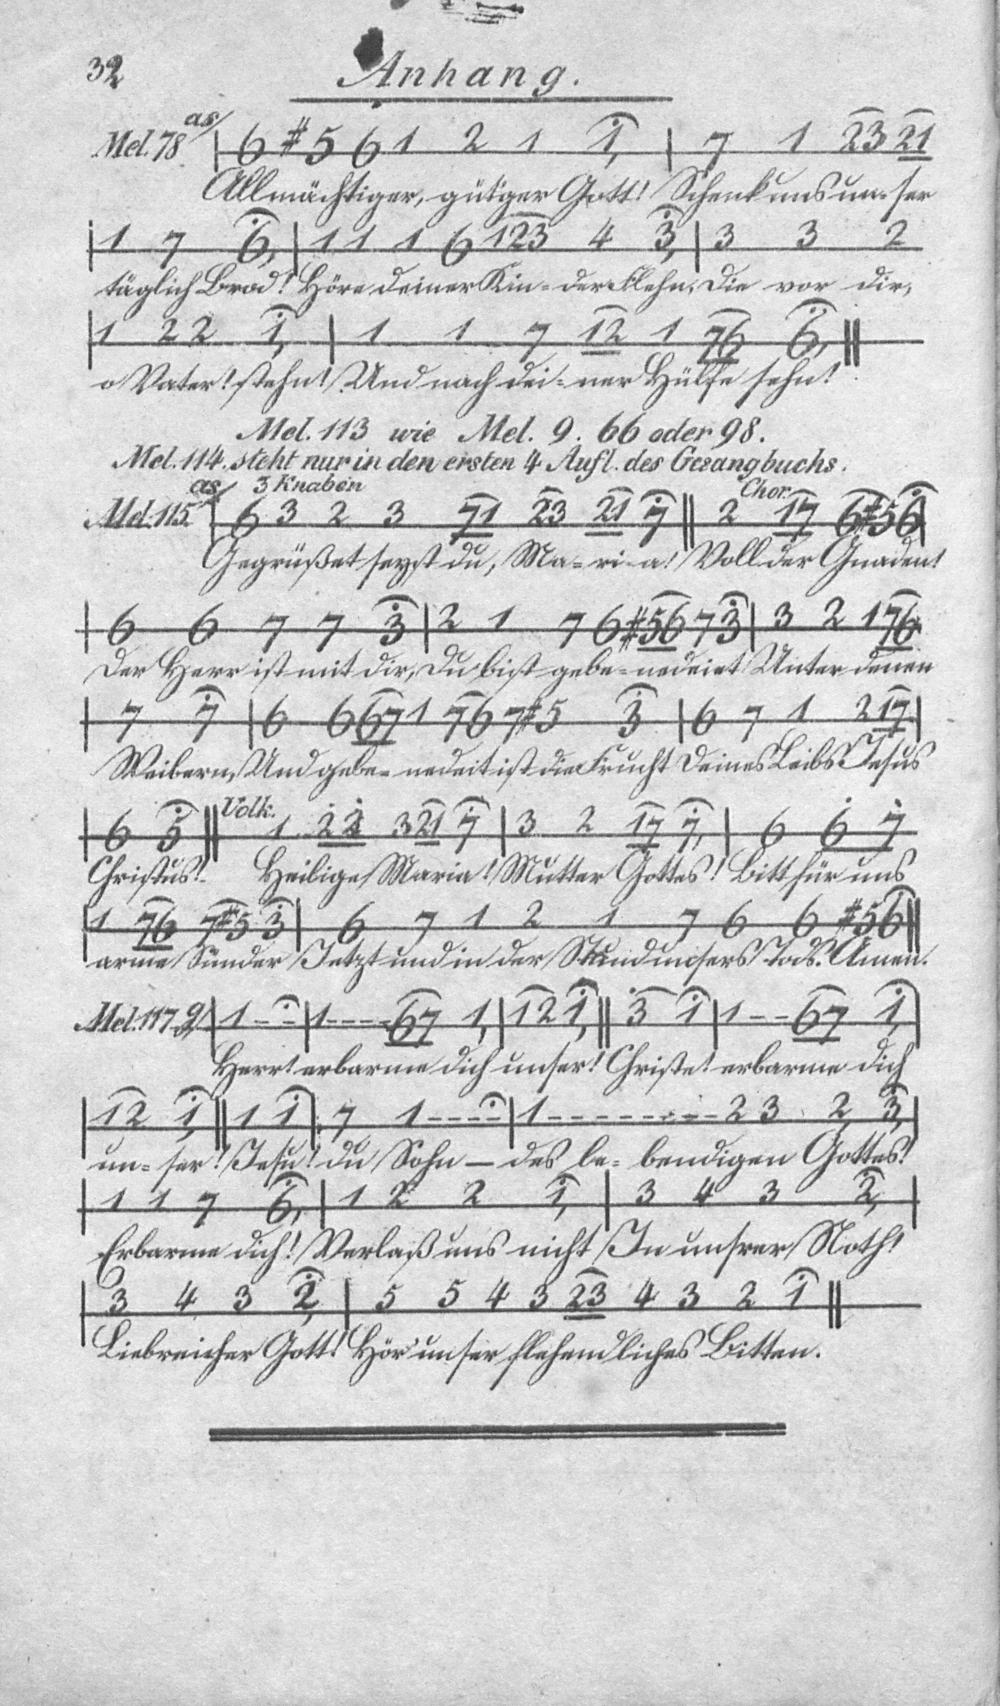 32
Anhang.
Mel. 78. as/ 6 #5 6 1 2 1 1, | 7 1 23 21
Allmächtiger, güt'ger Gott! Schenk uns un-ser
1 7 6, | 1 1 1 6 123 4 3, | 3 3 2
täglich Brod! Höre deiner Kin-der Flehn, Die vor dir,
1 2 2 1, | 1 1 7 12 1 76 6, ||
o Vater! stehn! Und nach dei-ner Hülfe sehn!
Mel. 113 wie Mel. 9. 66 oder 98.
Mel. 114. steht nur in den ersten 4 Aufl. des Gesangbuchs.
3 Knaben Chor.
Mel. 115. as/ 6 3 2 3 71 23 21 7 || 2 17 6 #5 6
Gegrüßet seyst du, Ma-ri-a! Voll der Gnaden!
6 6 7 7 3 | 2 1 7 6 #56 7 3 | 3 2 1 76
Der Herr ist mit dir, Du bist gebe-nedeiet Unter denen
7 7 | 6 6 67 1 76 7 #5 3 | 6 7 1 2 17 |
Weibern, Und gebe-nedeit ist die Frucht Deines Leibs Jesus
Volk.
6 5 || 1 22 3 21 7 | 3 2 17 7, | 6 6 7
Christus! Heilige Maria! Mutter Gottes! Bitt für uns
1 76 7 #5 3 | 6 7 1 2 1 7 6 6 #5 6 ||
arme Sünder Jetzt und in der Stund unsers Tods. Amen.
Mel. 117. g/ 1 -- | 1 ---- 67 1, | 12 1, || 3 1 | 1 -- 67 1, |
Herr! erbarme dich unser! Christe! erbarme dich
12 1, || 1 1 | 7 1 ---- | 1 -------- 2 3 2, 3, |
un-ser! Jesu! du Sohn — des le-bendigen Gottes!
1 1 7 6, | 1 2 2 1, | 3 4 3 2, |
Erbarme dich! Verlaß uns nicht In unsrer Noth!
3 4 3 2, | 5 5 4 3 23 4 3 2 1 ||
Liebreicher Gott! Hör' unser flehendliches Bitten.